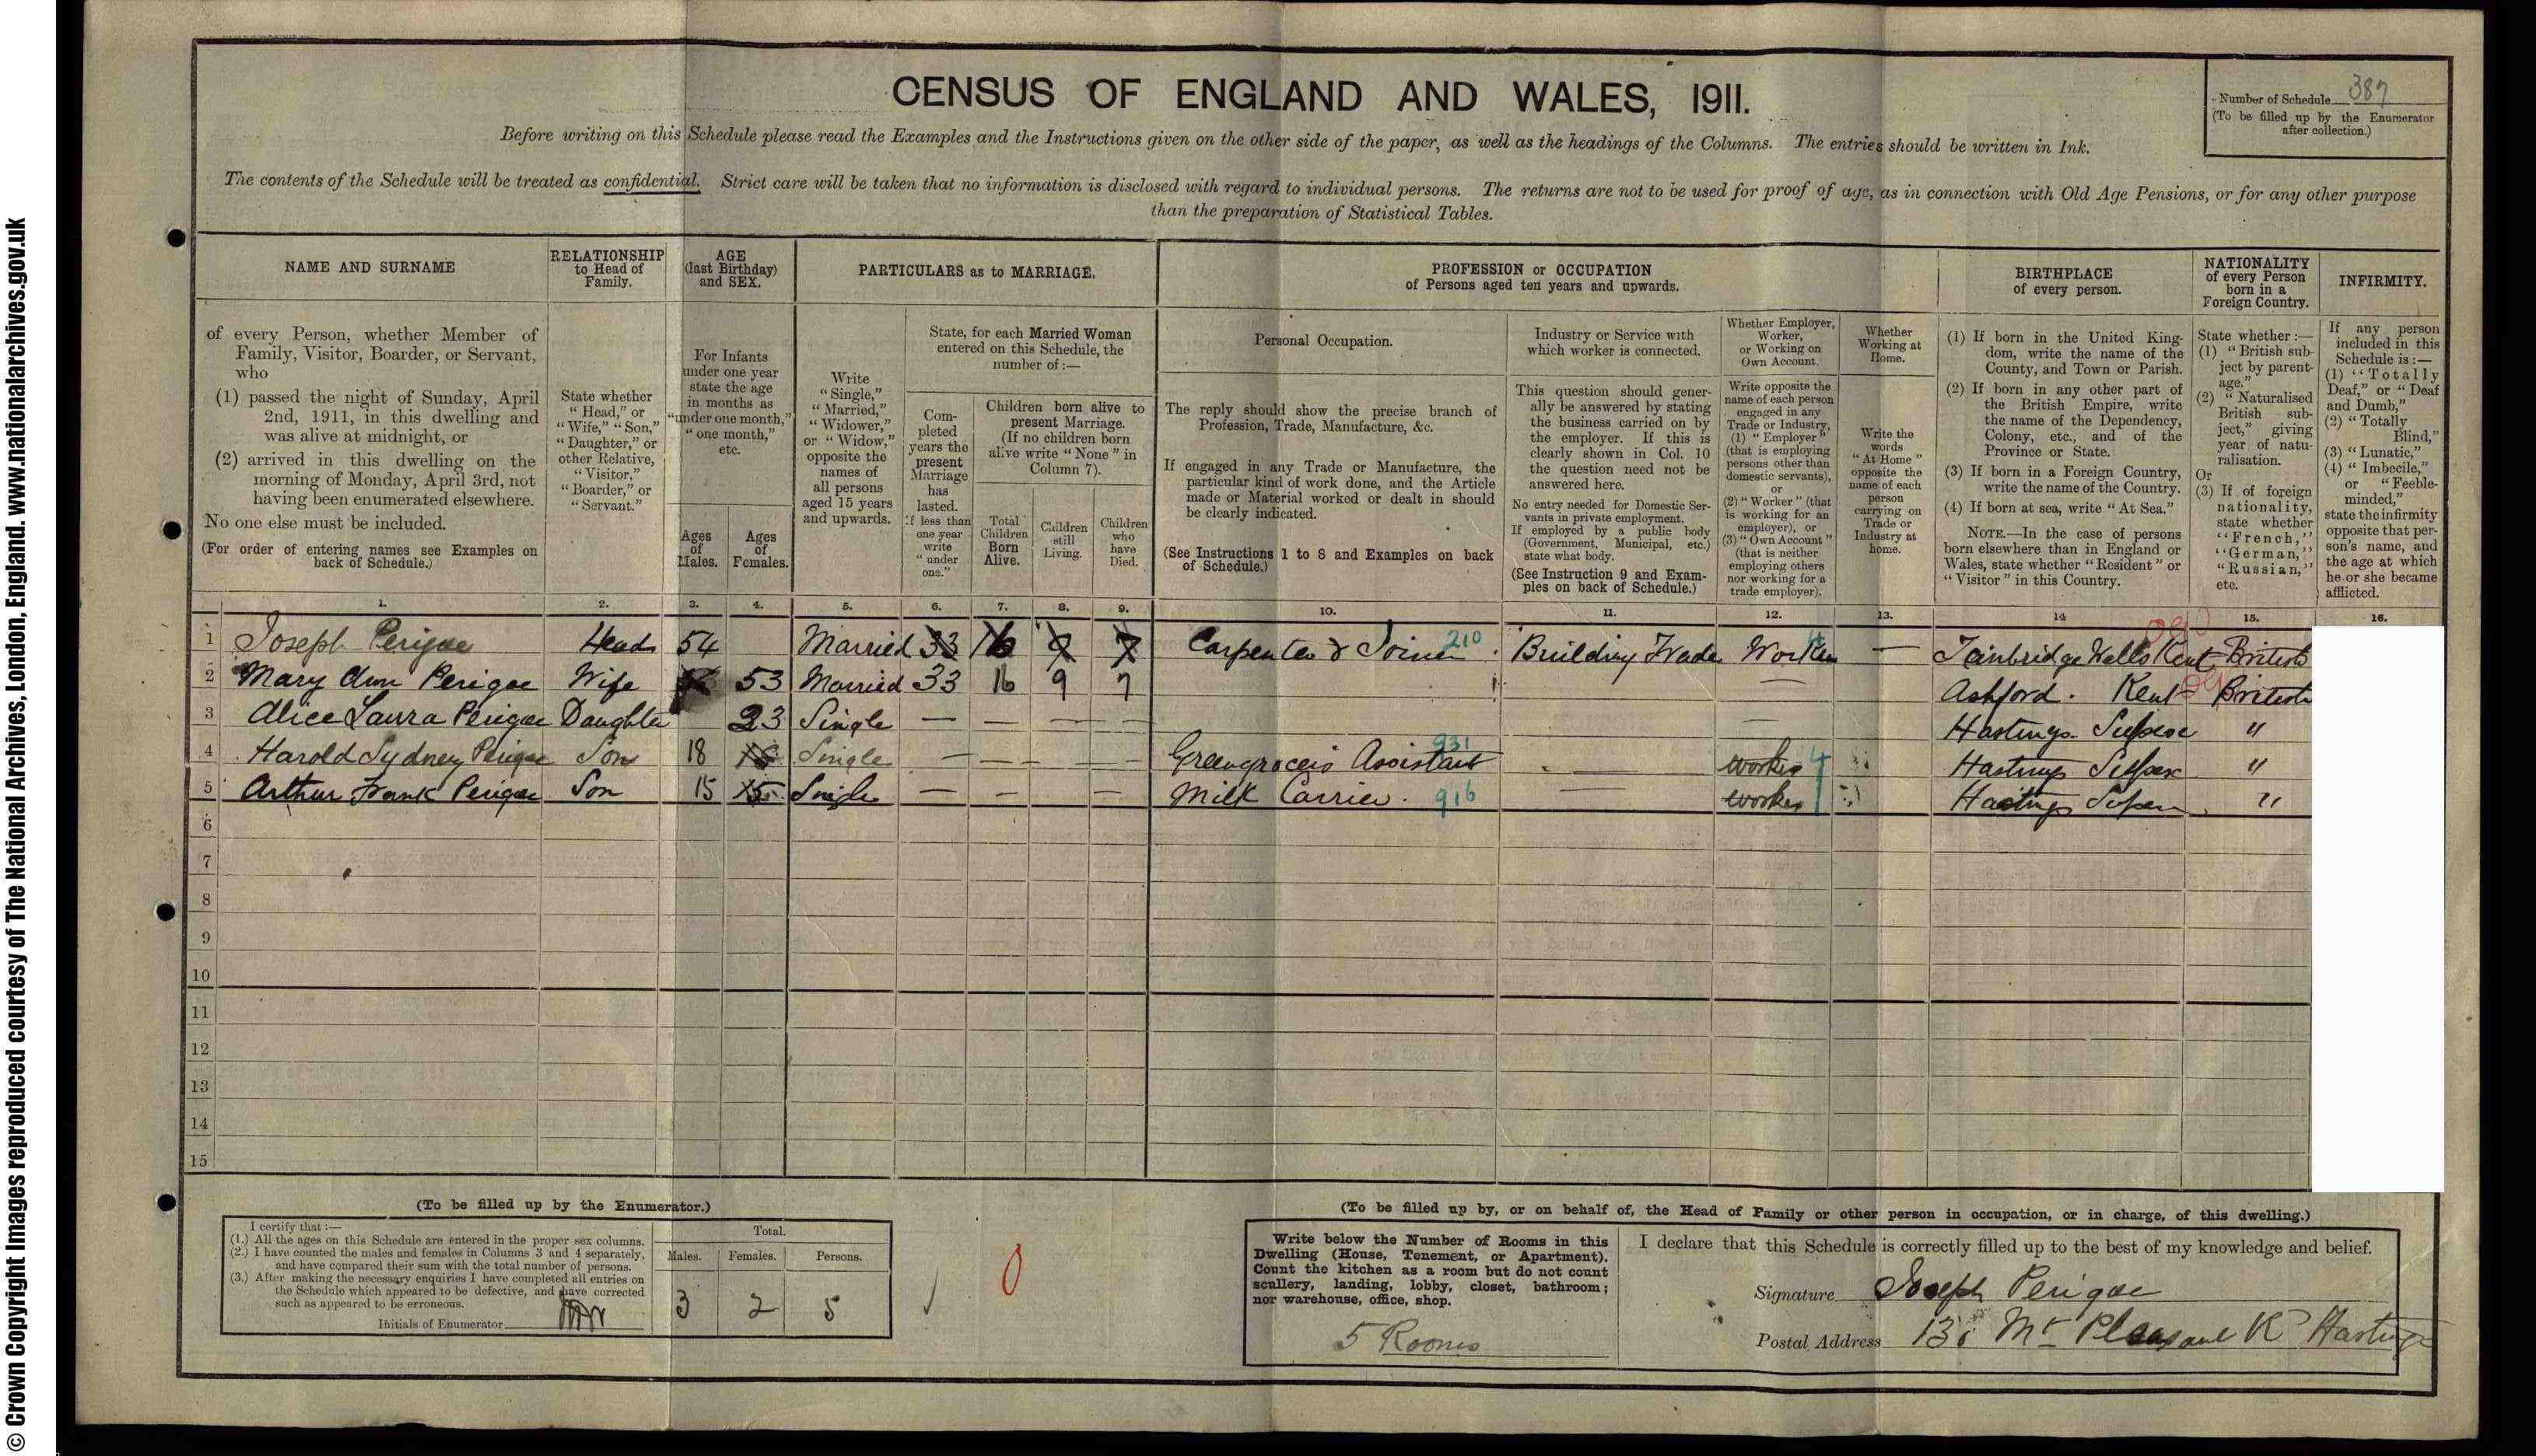 CENSUS OF ENGLAND AND WALES, 1911.
Number of Schedule 387
(To be filled up by the Enumerator
after collection.)
Before writing on this Schedule please read the Examples and the Instructions given on the other side of the paper, as well as the headings of the Columns. The entries should be written in Ink.
The contents of the Schedule will be treated as confidential. Strict care will be taken that no information is disclosed with regard to individual persons. The returns are not to be used for proof of age, as in connection with Old Age Pensions, or for any other purpose
than the preparation of Statistical Tables.
NAME AND SURNAME
of every Person, whether Member of
Family, Visitor, Boarder, or Servant,
who
(1) passed the night of Sunday, April
2nd, 1911, in this dwelling and
was alive at midnight, or
(2) arrived in this dwelling on the
morning of Monday, April 3rd, not
having been enumerated elsewhere.
No one else must be included.
(For order of entering names see Examples on
back of Schedule.)
RELATIONSHIP
to Head of
Family.
State whether
"Head," or
"Wife," "Son,"
"Daughter," or
other Relative,
"Visitor,"
"Boarder," or
"Servant."
AGE
(last Birthday)
and SEX.
For Infants
under one year
state the age
in months as
"under one month,"
"one month,"
etc.
Ages
of
Males.
Ages
of
Females.
PARTICULARS as to MARRIAGE.
Write
"Single,"
"Married,"
"Widower,"
or "Widow,"
opposite the
names of
all persons
aged 15 years
and upwards.
State, for each Married Woman
entered on this Schedule, the
number of :—
Com-
pleted
years the
present
Marriage
has
lasted.
If less than
one year
write
"under
one."
Children born alive to
present Marriage.
(If no children born
alive write "None" in
Column 7).
Total
Children
Born
Alive.
Children
still
Living.
Children
who
have
Died.
PROFESSION or OCCUPATION
of Persons aged ten years and upwards.
Personal Occupation.
The reply should show the precise branch of
Profession, Trade, Manufacture, &c.
If engaged in any Trade or Manufacture, the
particular kind of work done, and the Article
made or Material worked or dealt in should
be clearly indicated.
(See Instructions 1 to 8 and Examples on back
of Schedule.)
Industry or Service with
which worker is connected.
This question should gener-
ally be answered by stating
the business carried on by
the employer. If this is
clearly shown in Col. 10
the question need not be
answered here.
No entry needed for Domestic Ser-
vants in private employment.
If employed by a public body
(Government, Municipal, etc.)
state what body.
(See Instruction 9 and Exam-
ples on back of Schedule.)
Whether Employer,
Worker,
or Working on
Own Account.
Write opposite the
name of each person
engaged in any
Trade or Industry,
(1) "Employer"
(that is employing
persons other than
domestic servants),
or
(2) "Worker" (that
is working for an
employer), or
(3) "Own Account"
(that is neither
employing others
nor working for a
trade employer).
Whether
Working at
Home.
Write the
words
"At Home"
opposite the
name of each
person
carrying on
Trade or
Industry at
home.
BIRTHPLACE
of every person.
(1) If born in the United King-
dom, write the name of the
County, and Town or Parish.
(2) If born in any other part of
the British Empire, write
the name of the Dependency,
Colony, etc., and of the
Province or State.
(3) If born in a Foreign Country,
write the name of the Country.
(4) If born at sea, write "At Sea."
NOTE.—In the case of persons
born elsewhere than in England or
Wales, state whether "Resident" or
"Visitor" in this Country.
NATIONALITY
of every Person
born in a
Foreign Country.
State whether :—
(1) "British sub-
ject by parent-
age."
(2) "Naturalised
British sub-
ject," giving
year of natu-
ralisation.
Or
(3) If of foreign
nationality,
state whether
"French,"
"German,"
"Russian,"
etc.
INFIRMITY.
If any person
included in this
Schedule is :—
(1) "Totally
Deaf," or "Deaf
and Dumb,"
(2) "Totally
Blind,"
(3) "Lunatic,"
(4) "Imbecile,"
or "Feeble-
minded,"
state the infirmity
opposite that per-
son's name, and
the age at which
he or she became
afflicted.
1. 2. 3. 4. 5. 6. 7. 8. 9. 10. 11. 12. 13. 14 15. 16.
1 Joseph Perigoe Head 54 Married 33 16 9 7 Carpenter & Joiner 210 Building Trade Worker — Tunbridge Wells Kent British
2 Mary Ann Perigoe Wife 53 Married 33 16 9 7 — Ashford. Kent British
3 Alice Laura Perigoe Daughter 23 Single — — — — — Hastings Sussex "
4 Harold Sydney Perigoe Son 18 Single — — — — Greengrocers Assistant 931 — Worker 4 Hastings Sussex "
5 Arthur Frank Perigoe Son 15 15 Single — — — — Milk Carrier. 916 — Worker Hastings Sussex "
6
7
8
9
10
11
12
13
14
15
(To be filled up by the Enumerator.)
I certify that :—
(1.) All the ages on this Schedule are entered in the proper sex columns.
(2.) I have counted the males and females in Columns 3 and 4 separately,
and have compared their sum with the total number of persons.
(3.) After making the necessary enquiries I have completed all entries on
the Schedule which appeared to be defective, and have corrected
such as appeared to be erroneous.
Initials of Enumerator
Total.
Males. Females. Persons.
3 2 5
0
(To be filled up by, or on behalf of, the Head of Family or other person in occupation, or in charge, of this dwelling.)
Write below the Number of Rooms in this
Dwelling (House, Tenement, or Apartment).
Count the kitchen as a room but do not count
scullery, landing, lobby, closet, bathroom ;
nor warehouse, office, shop.
5 Rooms
I declare that this Schedule is correctly filled up to the best of my knowledge and belief.
Signature Joseph Perigoe
Postal Address Mt Pleasant Rd Hastings
© Crown Copyright Images reproduced courtesy of The National Archives, London, England. www.nationalarchives.gov.uk